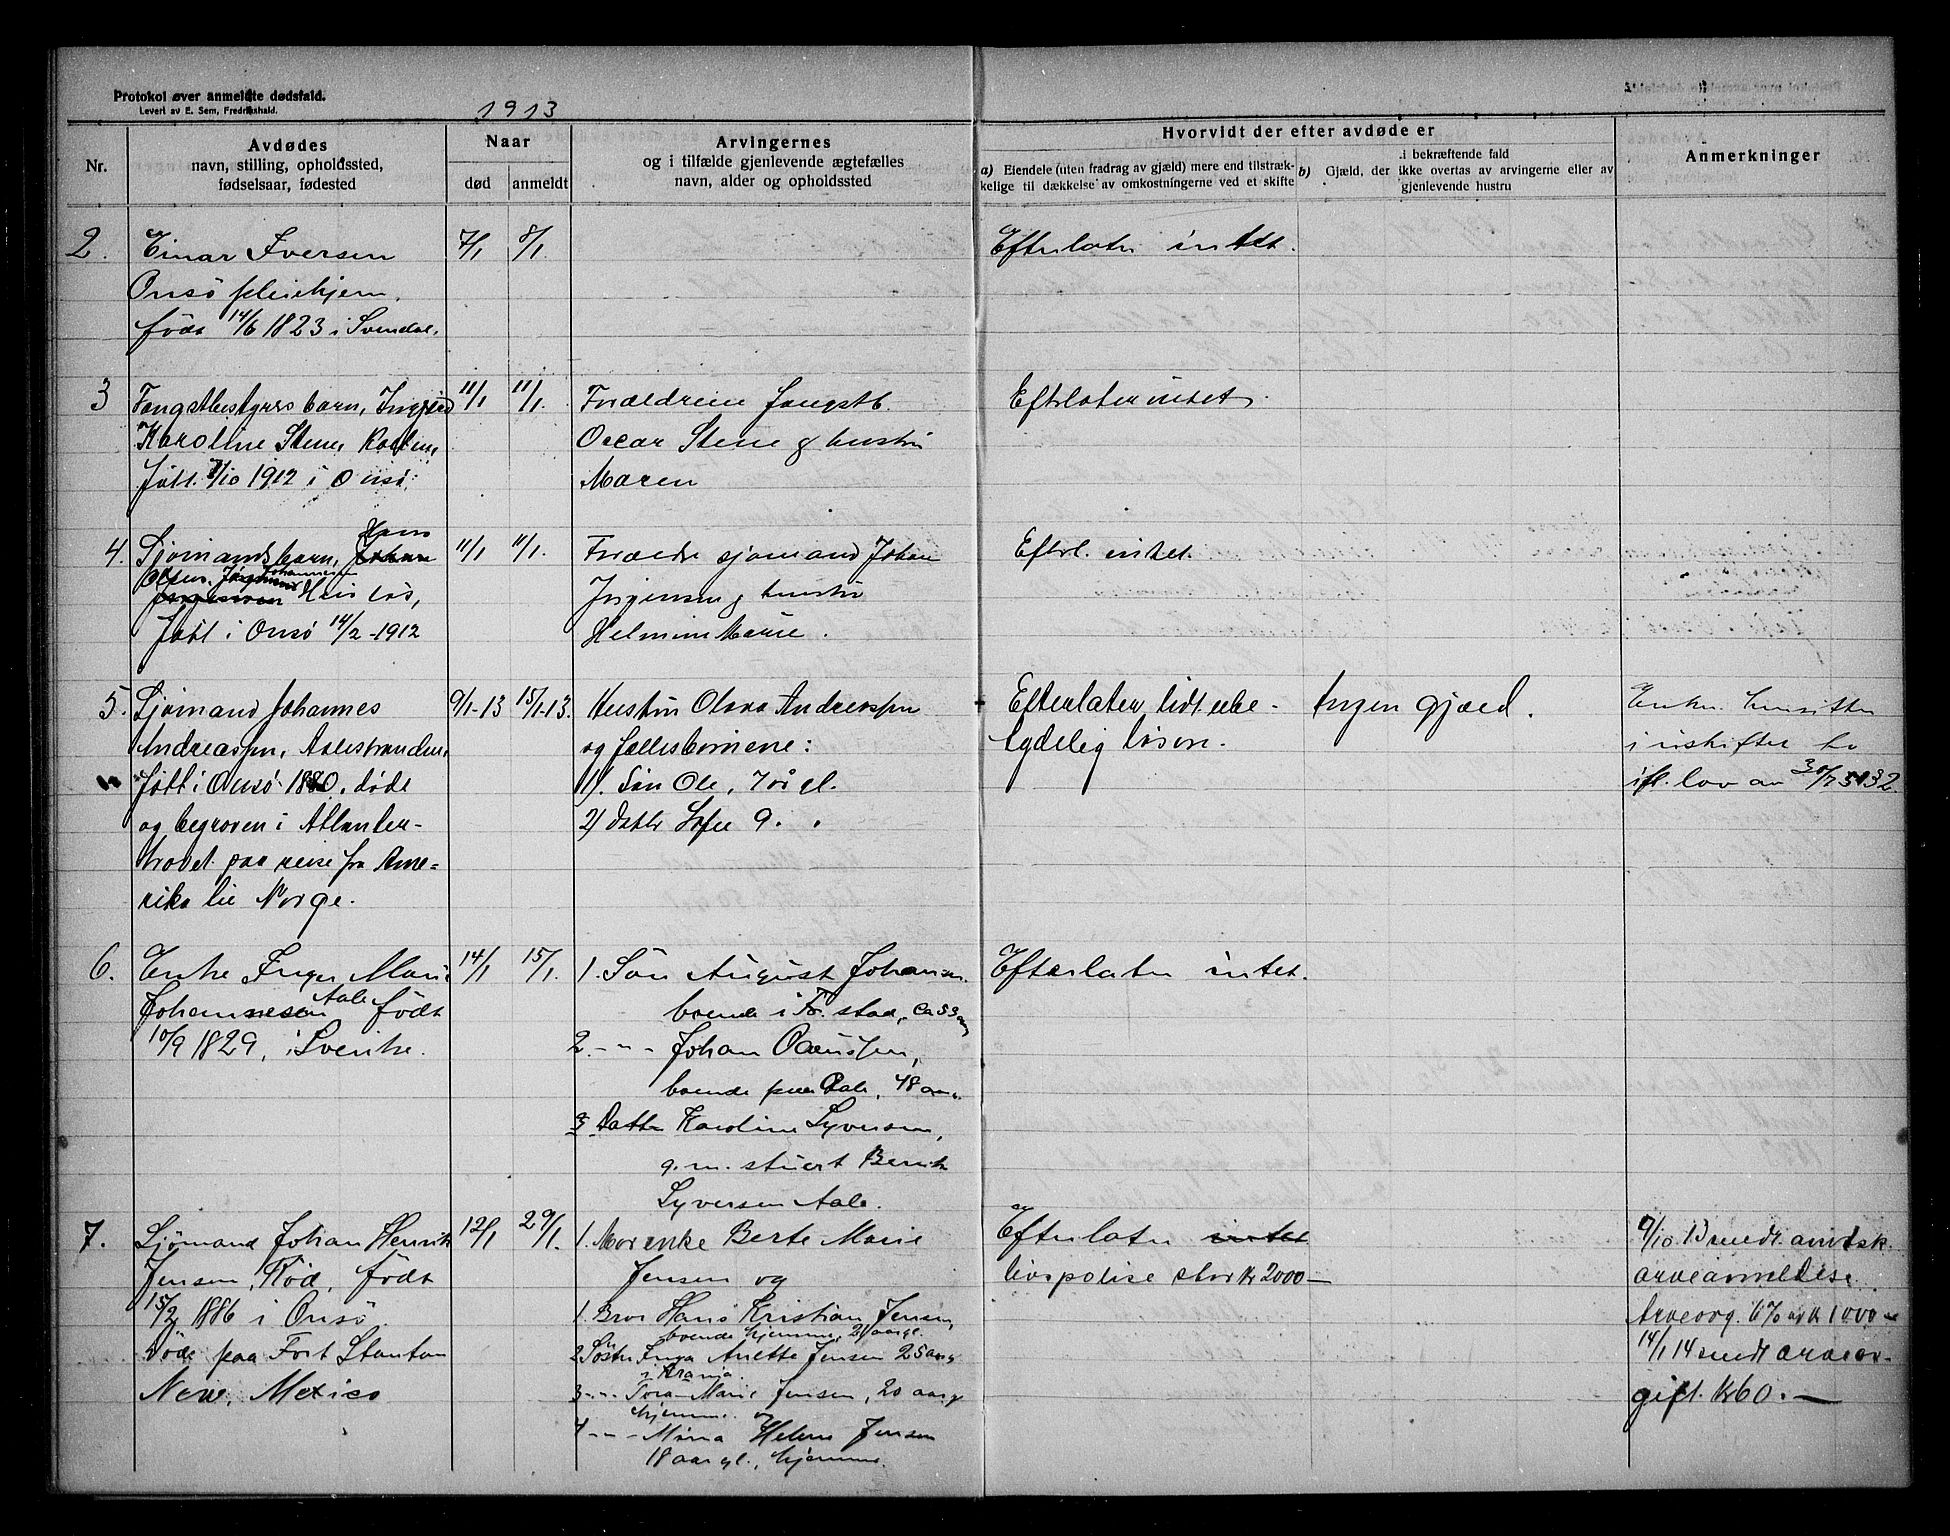 Protokol over anmeldte dødsfald.
Levert av E. Sem, Fredrikshald.
1913
Nr.
Avdødes
navn, stilling, opholdssted,
fødselsaar, fødested
Naar
død
anmeldt
Arvingernes
og i tilfælde gjenlevende ægtefælles
navn, alder og opholdssted
Hvorvidt der efter avdøde er
a) Eiendele (uten fradrag av gjæld) mere end tilstræk-
kelige til dækkelse av omkostningerne ved et skifte
b) Gjæld, der i bekræftende fald
ikke overtas av arvingerne eller av
gjenlevende hustru
Anmerkninger
2.
Einar Iversen
Onsö pleiehjem.
född 14/6 1823 i
7/1
8/1.
Efterlater intet.
3
Fangstbestyrers barn, Ingjerd
Karoline Stene,
født. 7/10 1912 i Onsö.
11/1
11/1.
Forældrene fangstb.
Oscar Stene & hustru
Maren
Efterlater intet.
4.
Hans
Sjømands barn, Johan
Olsen, Johannesen
Jørgensen
født i Onsö 14/2 - 1912
11/1
11/1.
Forældre sjømand Johan
Jørgensen & hustru
Efterl. intet.
5.
Sjömand Johannes
Andreassen, Aalestranden,
født i Onsö 1880, døde
og begraven i Atlanter-
havet paa reise fra Ame-
rika til Norge.
9/1-13
15/1-13.
Hustru Olava Andreassen
og fællesbörnene:
1). Sön Ole, 7 år gl.
2) Datter Sofie 9 . .
Efterlater lidt ube-
tydelig løsøre.
Ingen gjæld.
Enken hensitter
i uskiftet bo
ifl. lov av
6.
Enke Inger Marie
Johannesen Aale født
10/9 1829, i Sverike.
14/1
15/1.
1. Sön August Johansen
boende i Fr.stad, ca 53 aar
2. - " - Johan
boende paa Aale, 48 aar.
3 Datter Karoline Syversen,
g. m. stuert Bernt
Syversen Aale.
Efterlater intet.
7.
Sjömand Johan Henrik
Jensen, Röd, født
15/2 1886 i Onsö.
Døde paa Fort Stanton
New. Mexico
12/1
29/1.
1. Mor enke Berte Marie
Jensen og
1. Bror Hans Kristian Jensen,
boende hjemme, 21 aar gl.
2 Söster Inga Anette Jensen 25 aar g
i Krania.
3 - " - Tora Marie Jensen, 20 aar g
hjemme. og
4 - " - Mina Helene Jensen
18 aar gl., hjemme.
Efterlater intet
livspolise stor Kr 2000 —
9/10 13 sendt amtsk.
arveanmeldelse.
Arveavg. 6% av kr 1000 —
14/1 14 sendt arveav-
gift. Kr 60. —